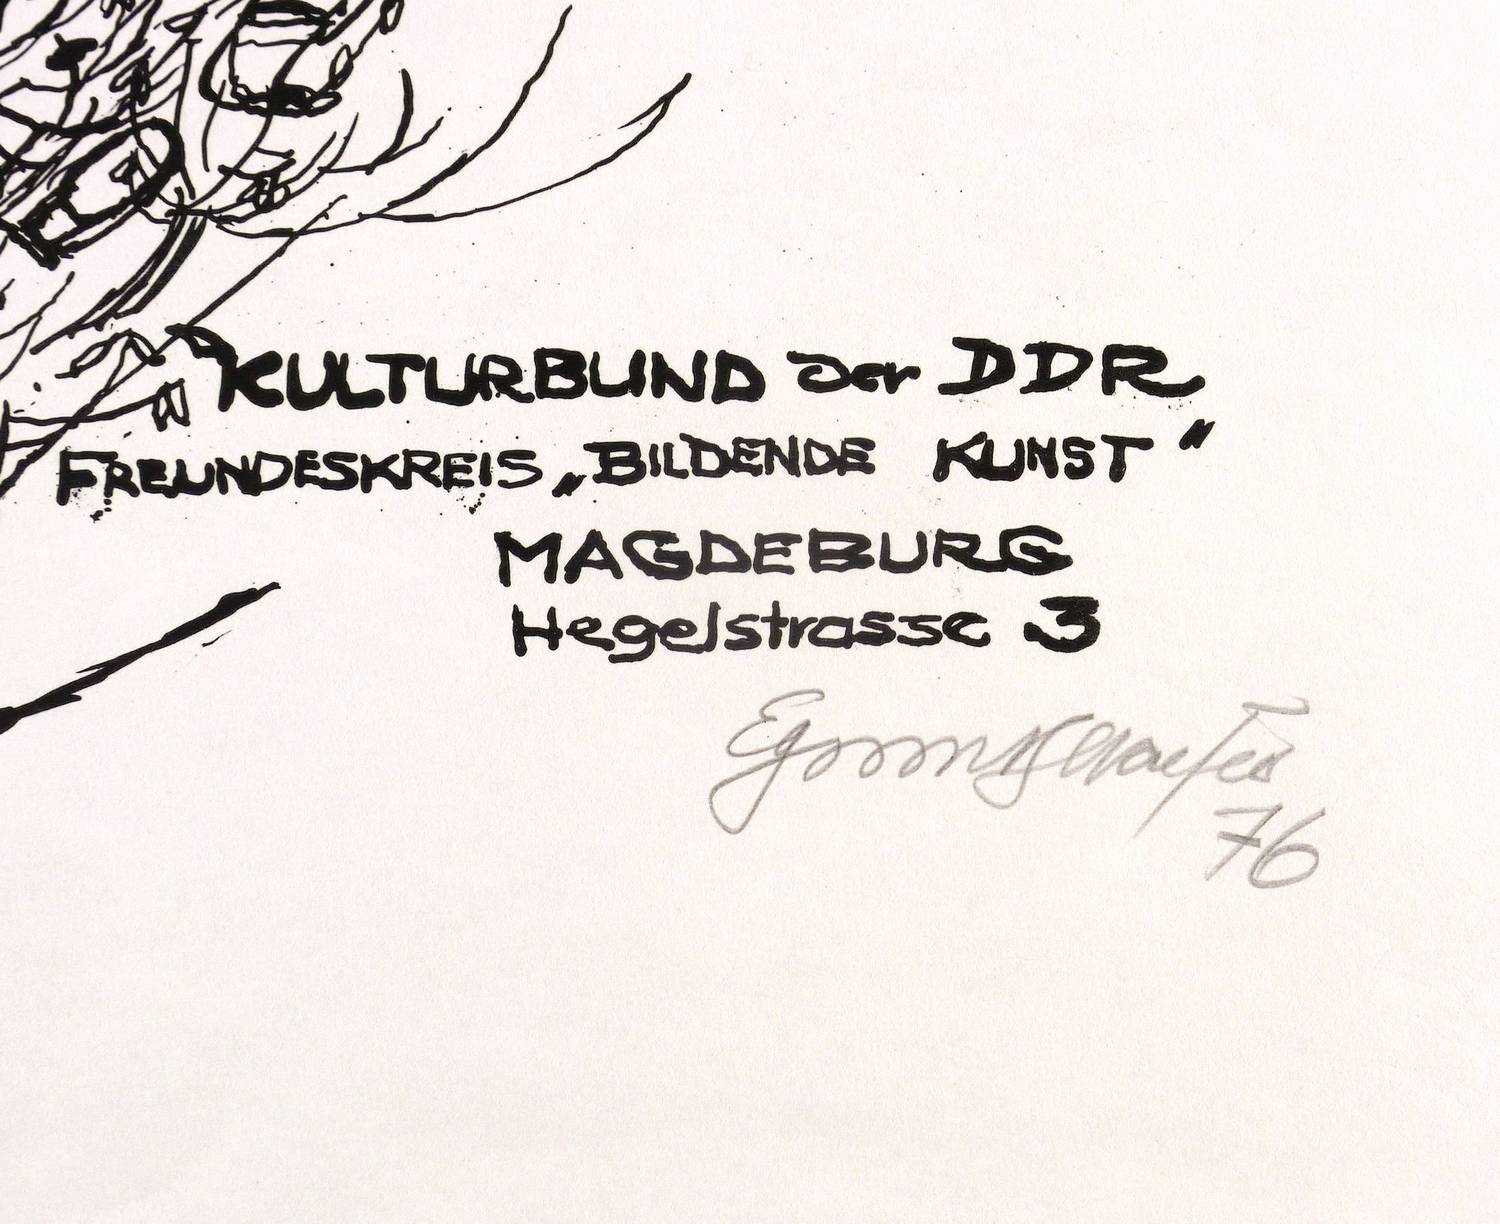 KULTURBUND der DDR
FREUNDESKREIS „BILDENDE KUNST"
MAGDEBURG
Hegelstrasse 3
76